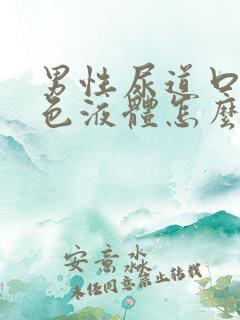 男性尿道口
色液體怎麼
安意淼
未任同意禁止转载